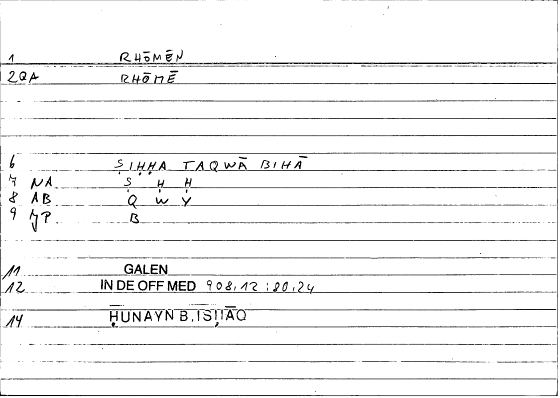 1 RHŌMĒN
2 QA RHŌMĒ
6 ṢIḤḤA TAQWĀ BIHĀ
7 NA Ṣ Ḥ Ḥ
8 AB Q W Y
9 JP B
11 GALEN
12 IN DE OFF MED 908,12 : 80,24
14 ḤUNAYN B. ISḤĀQ